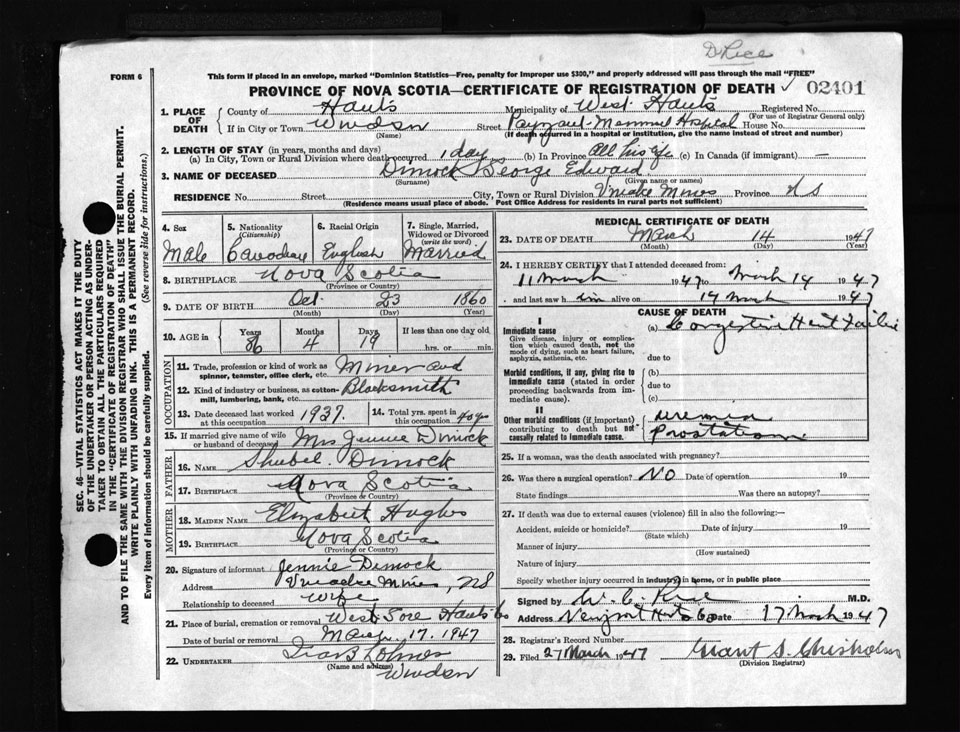 D Rice
FORM 6
This form if placed in an envelope, marked "Dominion Statistics—Free, penalty for improper use $300," and properly addressed will pass through the mail "FREE"
PROVINCE OF NOVA SCOTIA—CERTIFICATE OF REGISTRATION OF DEATH ✓ 02401
1. PLACE OF DEATH
County of Hants Municipality of West Hants Registered No.
(For use of Registrar General only)
If in City or Town Windsor Street Payzant Memorial Hospital House No.
(Name) (If death occurred in a hospital or institution, give the name instead of street and number)
2. LENGTH OF STAY (in years, months and days)
(a) In City, Town or Rural Division where death occurred 1 day (b) In Province All his life (c) In Canada (if immigrant) —
3. NAME OF DECEASED Dimock George Edward
(Surname) (Given name or names)
RESIDENCE No. Street City, Town or Rural Division Mines Province N S
(Residence means usual place of abode. Post Office Address for residents in rural parts not sufficient)
4. Sex 5. Nationality (Citizenship) 6. Racial Origin 7. Single, Married, Widowed or Divorced (write the word)
Male Canadian English Married
8. BIRTHPLACE Nova Scotia
(Province or Country)
9. DATE OF BIRTH Oct 23 1860
(Month) (Day) (Year)
10. AGE in Years Months Days If less than one day old
86 4 19 hrs. or min.
OCCUPATION
11. Trade, profession or kind of work as spinner, teamster, office clerk, etc. Miner and
12. Kind of industry or business, as cotton-mill, lumbering, bank, etc. Blacksmith
13. Date deceased last worked at this occupation 1937. 14. Total yrs. spent in this occupation 40
15. If married give name of wife or husband of deceased Mrs Jennie Dimock
FATHER
16. NAME Shubel Dimock
17. BIRTHPLACE Nova Scotia
(Province or Country)
MOTHER
18. MAIDEN NAME Elizabeth Hughes
19. BIRTHPLACE Nova Scotia
(Province or Country)
20. Signature of informant Jennie Dimock
Address Mines, NS
Relationship to deceased wife
21. Place of burial, cremation or removal West Gore Hants Co
Date of burial or removal March 17. 1947
22. UNDERTAKER
(Name and address)
Windsor
MEDICAL CERTIFICATE OF DEATH
23. DATE OF DEATH March 14 1947
(Month) (Day) (Year)
24. I HEREBY CERTIFY that I attended deceased from:
11 March 1947 to March 14 1947
and last saw him alive on 14 March 1947
CAUSE OF DEATH
I
Immediate cause
Give disease, injury or complication which caused death, not the mode of dying, such as heart failure, asphyxia, asthenia, etc.
(a) Congestive Heart Failure
due to
Morbid conditions, if any, giving rise to immediate cause (stated in order proceeding backwards from immediate cause).
(b)
due to
(c)
II
Other morbid conditions (if important) contributing to death but not causally related to immediate cause.
uremia
25. If a woman, was the death associated with pregnancy?
26. Was there a surgical operation? NO Date of operation 19
State findings Was there an autopsy?
27. If death was due to external causes (violence) fill in also the following:—
Accident, suicide or homicide? Date of injury 19
(State which)
Manner of injury
(How sustained)
Nature of injury
Specify whether injury occurred in industry, in home, or in public place
Signed by W. C. Rice M.D.
Address Newport Hants Co Date 17 March 1947
28. Registrar's Record Number
29. Filed 27 March 1947 Grant S. Chisholm
(Division Registrar)
SEC. 46—VITAL STATISTICS ACT MAKES IT THE DUTY
OF THE UNDERTAKER OR PERSON ACTING AS UNDER-
TAKER TO OBTAIN ALL THE PARTICULARS REQUIRED
IN THE "CERTIFICATE OF REGISTRATION OF DEATH"
AND TO FILE THE SAME WITH THE DIVISION REGISTRAR WHO SHALL ISSUE THE BURIAL PERMIT.
WRITE PLAINLY WITH UNFADING INK. THIS IS A PERMANENT RECORD.
Every item of information should be carefully supplied. (See reverse side for instructions.)